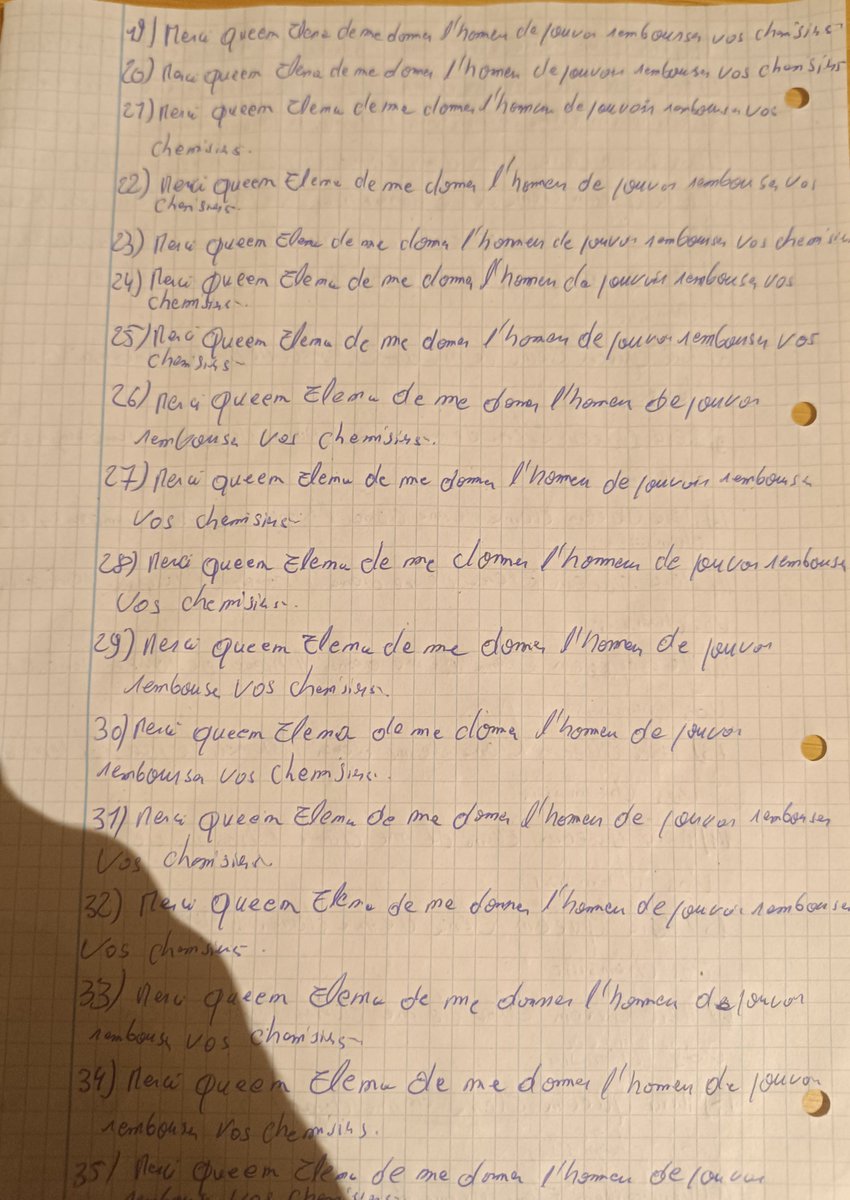 19) Merci queem Elena de me donner l'homen de pouvoir rembourser vos chemisiers
20) Merci queem Elena de me donner l'homen de pouvoir rembourser vos chemisiers
21) Merci queem Elema de me donner l'homen de pouvoir rembourser vos
chemisiers.
22) Merci queem Elema de me donner l'homen de pouvoir rembourser vos
chemisiers.
23) Merci queem Elema de me donner l'honnen de pouvoir rembourser vos chemisiers
24) Merci Queem Elema de me donner l'honnen de pouvoir rembourser vos
chemisiers.
25) Merci Queem Elema de me donner l'homen de pouvoir rembourser vos
chemisiers
26) Merci queem Elema de me donner l'homen de pouvoir
rembourser vos chemisiers.
27) Merci queem Elema de me donner l'homen de pouvoir rembourser
vos chemisiers
28) Merci queem Elema de me donner l'honneur de pouvoir rembourser
vos chemisiers.
29) Merci queem Elema de me donner l'homen de pouvoir
rembourser vos chemisiers.
30) Merci queem Elema de me donner l'homen de pouvoir
rembourser vos chemisiers.
31) Merci queem Elema de me donner l'homen de pouvoir rembourser
vos chemisiers
32) Merci queem Elema de me donner l'homen de pouvoir rembourser
vos chemisiers.
33) Merci queem Elema de me donner l'homen de pouvoir
rembourser vos chemisiers
34) Merci queem Elema de me donner l'homen de pouvoir
rembourser vos chemisiers.
35) Merci queem Elema de me donner l'homen de pouvoir
rembourser vos chemisiers